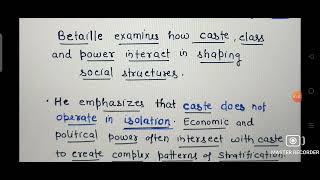 Betaille examines how caste, class
and power interact in shaping
social structures.
• He emphasizes that caste does not
operate in isolation. Economic and
political power often intersect with caste
to create complex patterns of stratification
MASTER RECORDER